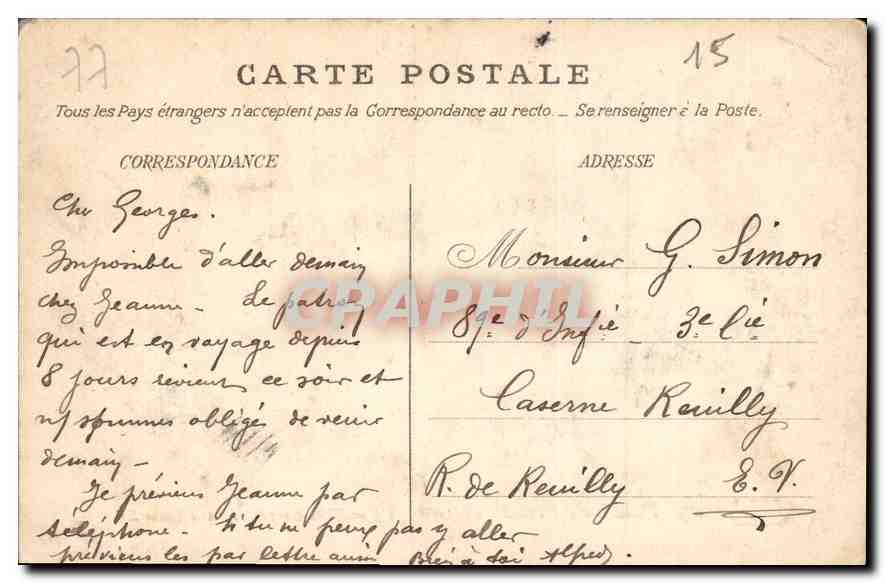 77
15
CARTE POSTALE
Tous les Pays étrangers n'acceptent pas la Correspondance au recto. _ Se renseigner à la Poste.
CORRESPONDANCE
Cher Georges.
Impossible d'aller demain
chez Jeanne _ Le patron
qui est en voyage depuis
8 jours revient ce soir et
ns sommes obligés de venir
demain _
Je préviens Jeanne par
téléphone _ Si tu ne peux pas y aller
préviens les par lettre aussi Bien à toi Alfred.
ADRESSE
Monsieur G. Simon
89e d'Infie _ 3e Cie
Caserne Reuilly
R. de Reuilly E.V.
CPAPHIL